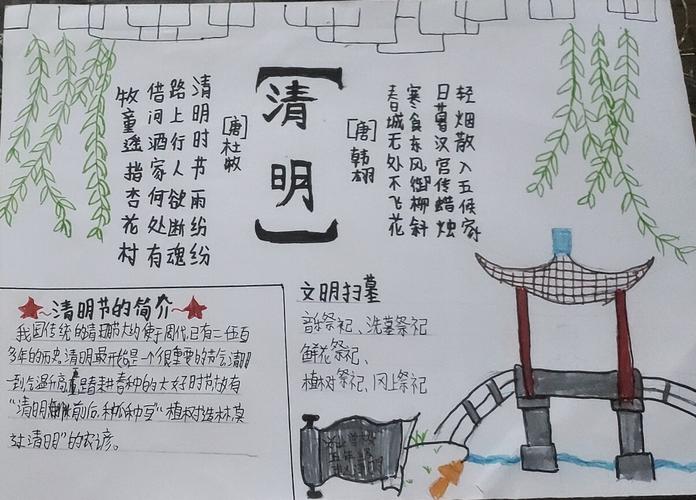 清明
轻烟散入五候家
日暮汉宫传蜡烛
寒食东风御柳斜
春城无处不飞花
[唐]韩
清明时节雨纷纷
路上行人欲断魂
借问酒家何处有
牧童遥指杏花村
[唐]杜牧
清明节的简介
我国传统的清明节大约使于周代,已有二伍百
多年的历史,清明最开始是一个很重要的节气,清明
一到气温升高春耕春种的大好时节故有
“清明前后,种瓜种豆”“植树造林莫
过清明”的农谚。
文明扫墓
音乐祭祀、洗墓祭祀
鲜花祭祀、
植树祭祀、网上祭祀
五年级